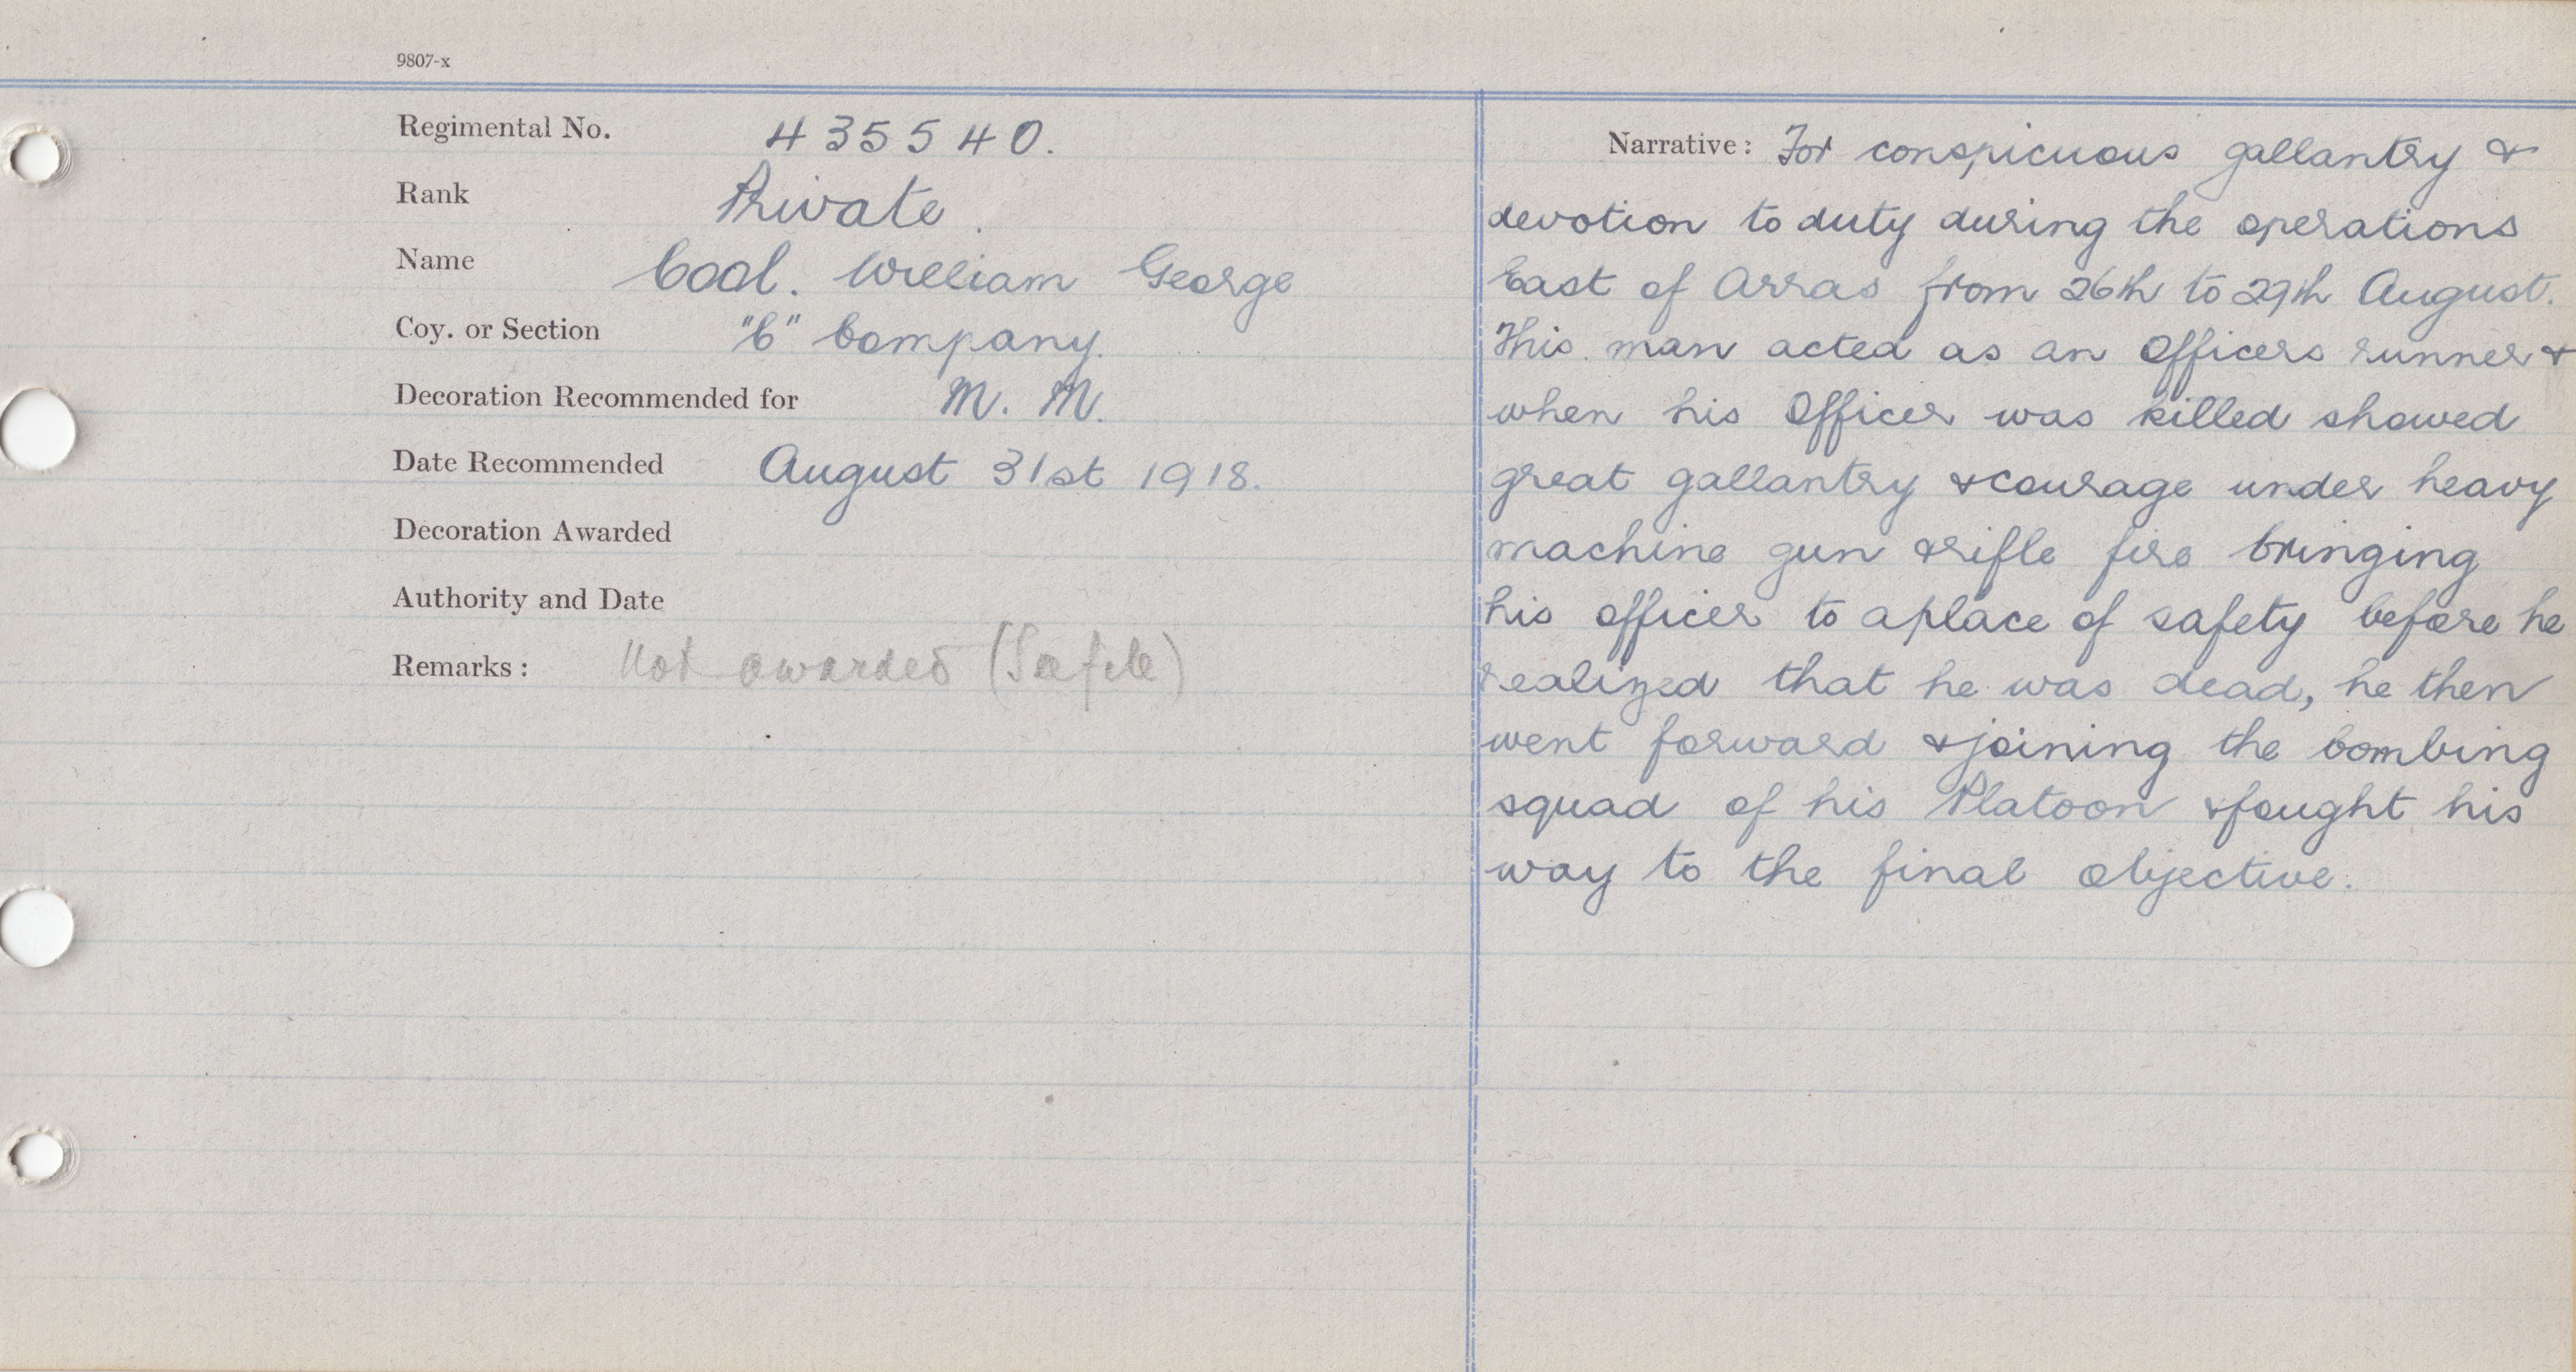 9807-x
Regimental No. 435540.
Rank Private.
Name Cool. William George
Coy. or Section "C" Company.
Decoration Recommended for M. M.
Date Recommended August 31st 1918.
Decoration Awarded
Authority and Date
Remarks: Not awarded (See file)
Narrative: For conspicuous gallantry &
devotion to duty during the operations
East of Arras from 26th to 29th August.
This man acted as an Officers runner &
when his Officer was killed showed
great gallantry & courage under heavy
machine gun & rifle fire bringing
his officer to a place of safety before he
realized that he was dead, he then
went forward & joining the bombing
squad of his Platoon & fought his
way to the final objective.